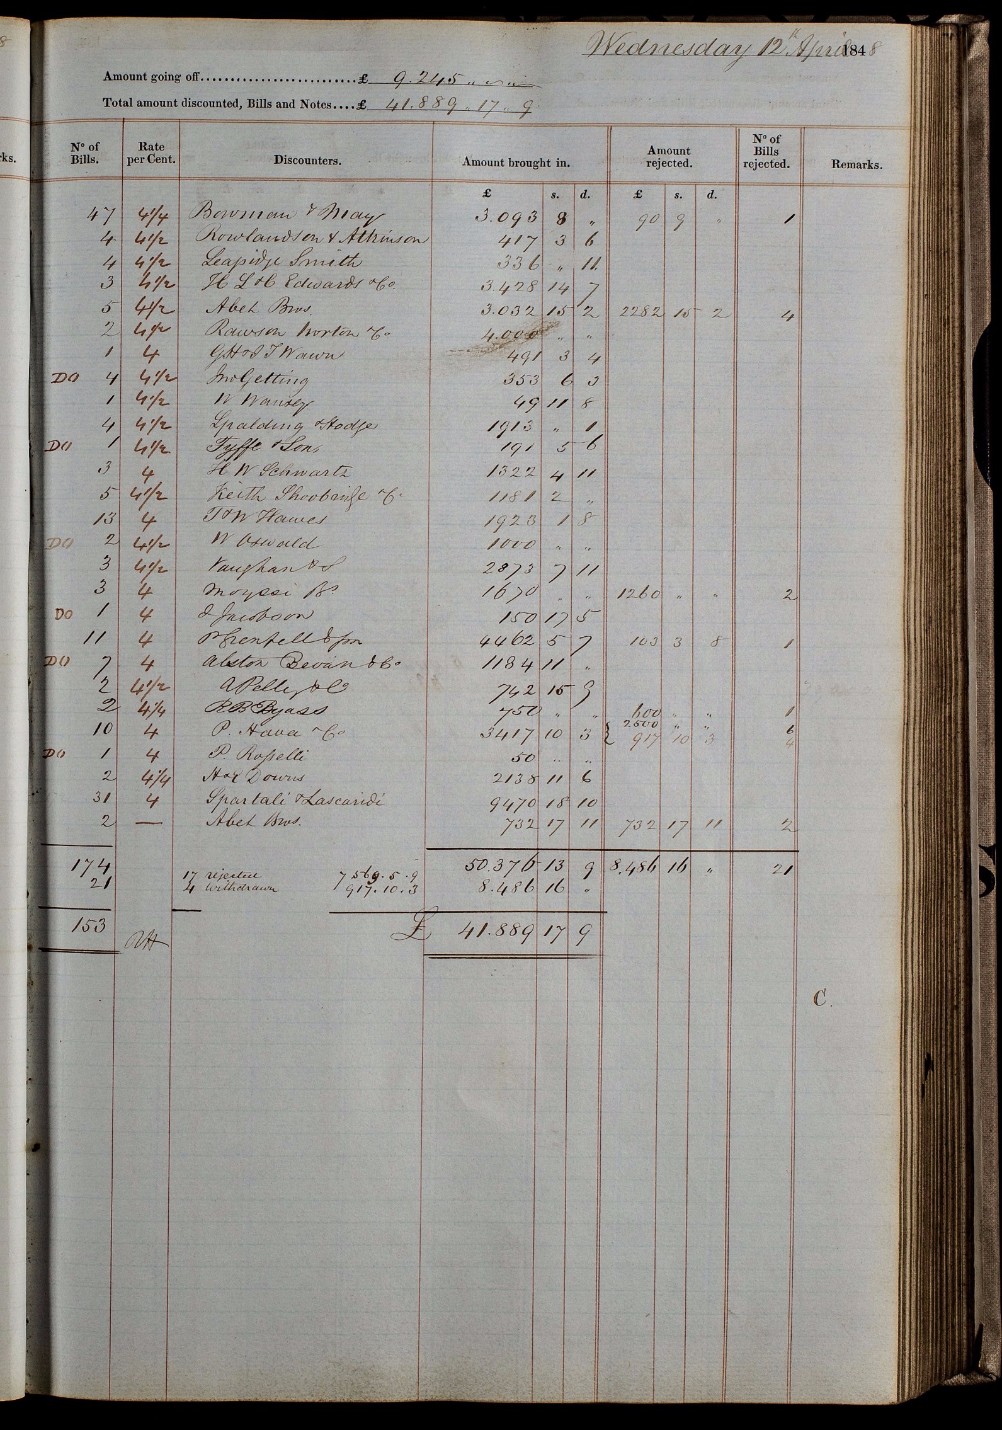 8
Wednesday 12th April 1848
Amount going off..........................£ 9.245 " " "
Total amount discounted, Bills and Notes....£ 41.889 " 17 " 9
ks.
No of Bills. Rate per Cent. Discounters. Amount brought in. Amount rejected. No of Bills rejected. Remarks.
£ s. d. £ s. d.
47 4 1/4 Bowman & May 3.093 8 " 90 9 " 1
4 4 1/2 Rowlandson & Atkinson 417 3 6
4 4 1/2 Leapidge Smith 336 " 11
3 4 1/2 H L & C Edwards & Co. 3.428 14 7
5 4 1/2 Abel Bros. 3.032 15 2 2282 15 2 4
2 4 1/2 Rawson Norton & Co 4.000 " "
1 4 G H & J T Wawn 491 3 4
DO 4 4 1/2 Jno Getting 353 6 3
1 4 1/2 W Wansey 49 11 8
4 4 1/2 Spalding & Hodge 1913 " 1
DO 1 4 1/2 Fyffe & Sons 191 5 6
3 4 H W Schwartz 1322 4 11
5 4 1/2 Keith Shoobridge & Co 1181 2 "
13 4 T & W Hawes 1923 1 8
DO 2 4 1/2 W Oswald 1000 " "
3 4 1/2 Vaughan & S 2873 7 11
3 4 1670 " " 1260 " " 2
DO 1 4 Jacobson 150 17 5
11 4 P Grenfell & Son 4462 5 7 103 3 8 1
DO 7 4 Alston Bevan & Co 1184 11 "
2 4 1/2 A Pelly & Co 742 15 9
2 4 1/4 R B Byass 750 " " 600 " " 1
2500 " " 6
10 4 P. Hava & Co 3417 10 3 { 917 10 3 4
DO 1 4 P. Rosselli 50 " "
2 4 1/4 H & E Downs 2138 11 6
31 4 Spartali & Lascaridi 9470 18 10
2 — Abel Bros. 732 17 11 732 17 11 2
174 17 rejected 7569.5.9 50.376 13 9 8.486 16 " 21
21 4 withdrawn 917.10.3 8.486 16 "
153 £ 41.889 17 9
RH
C.